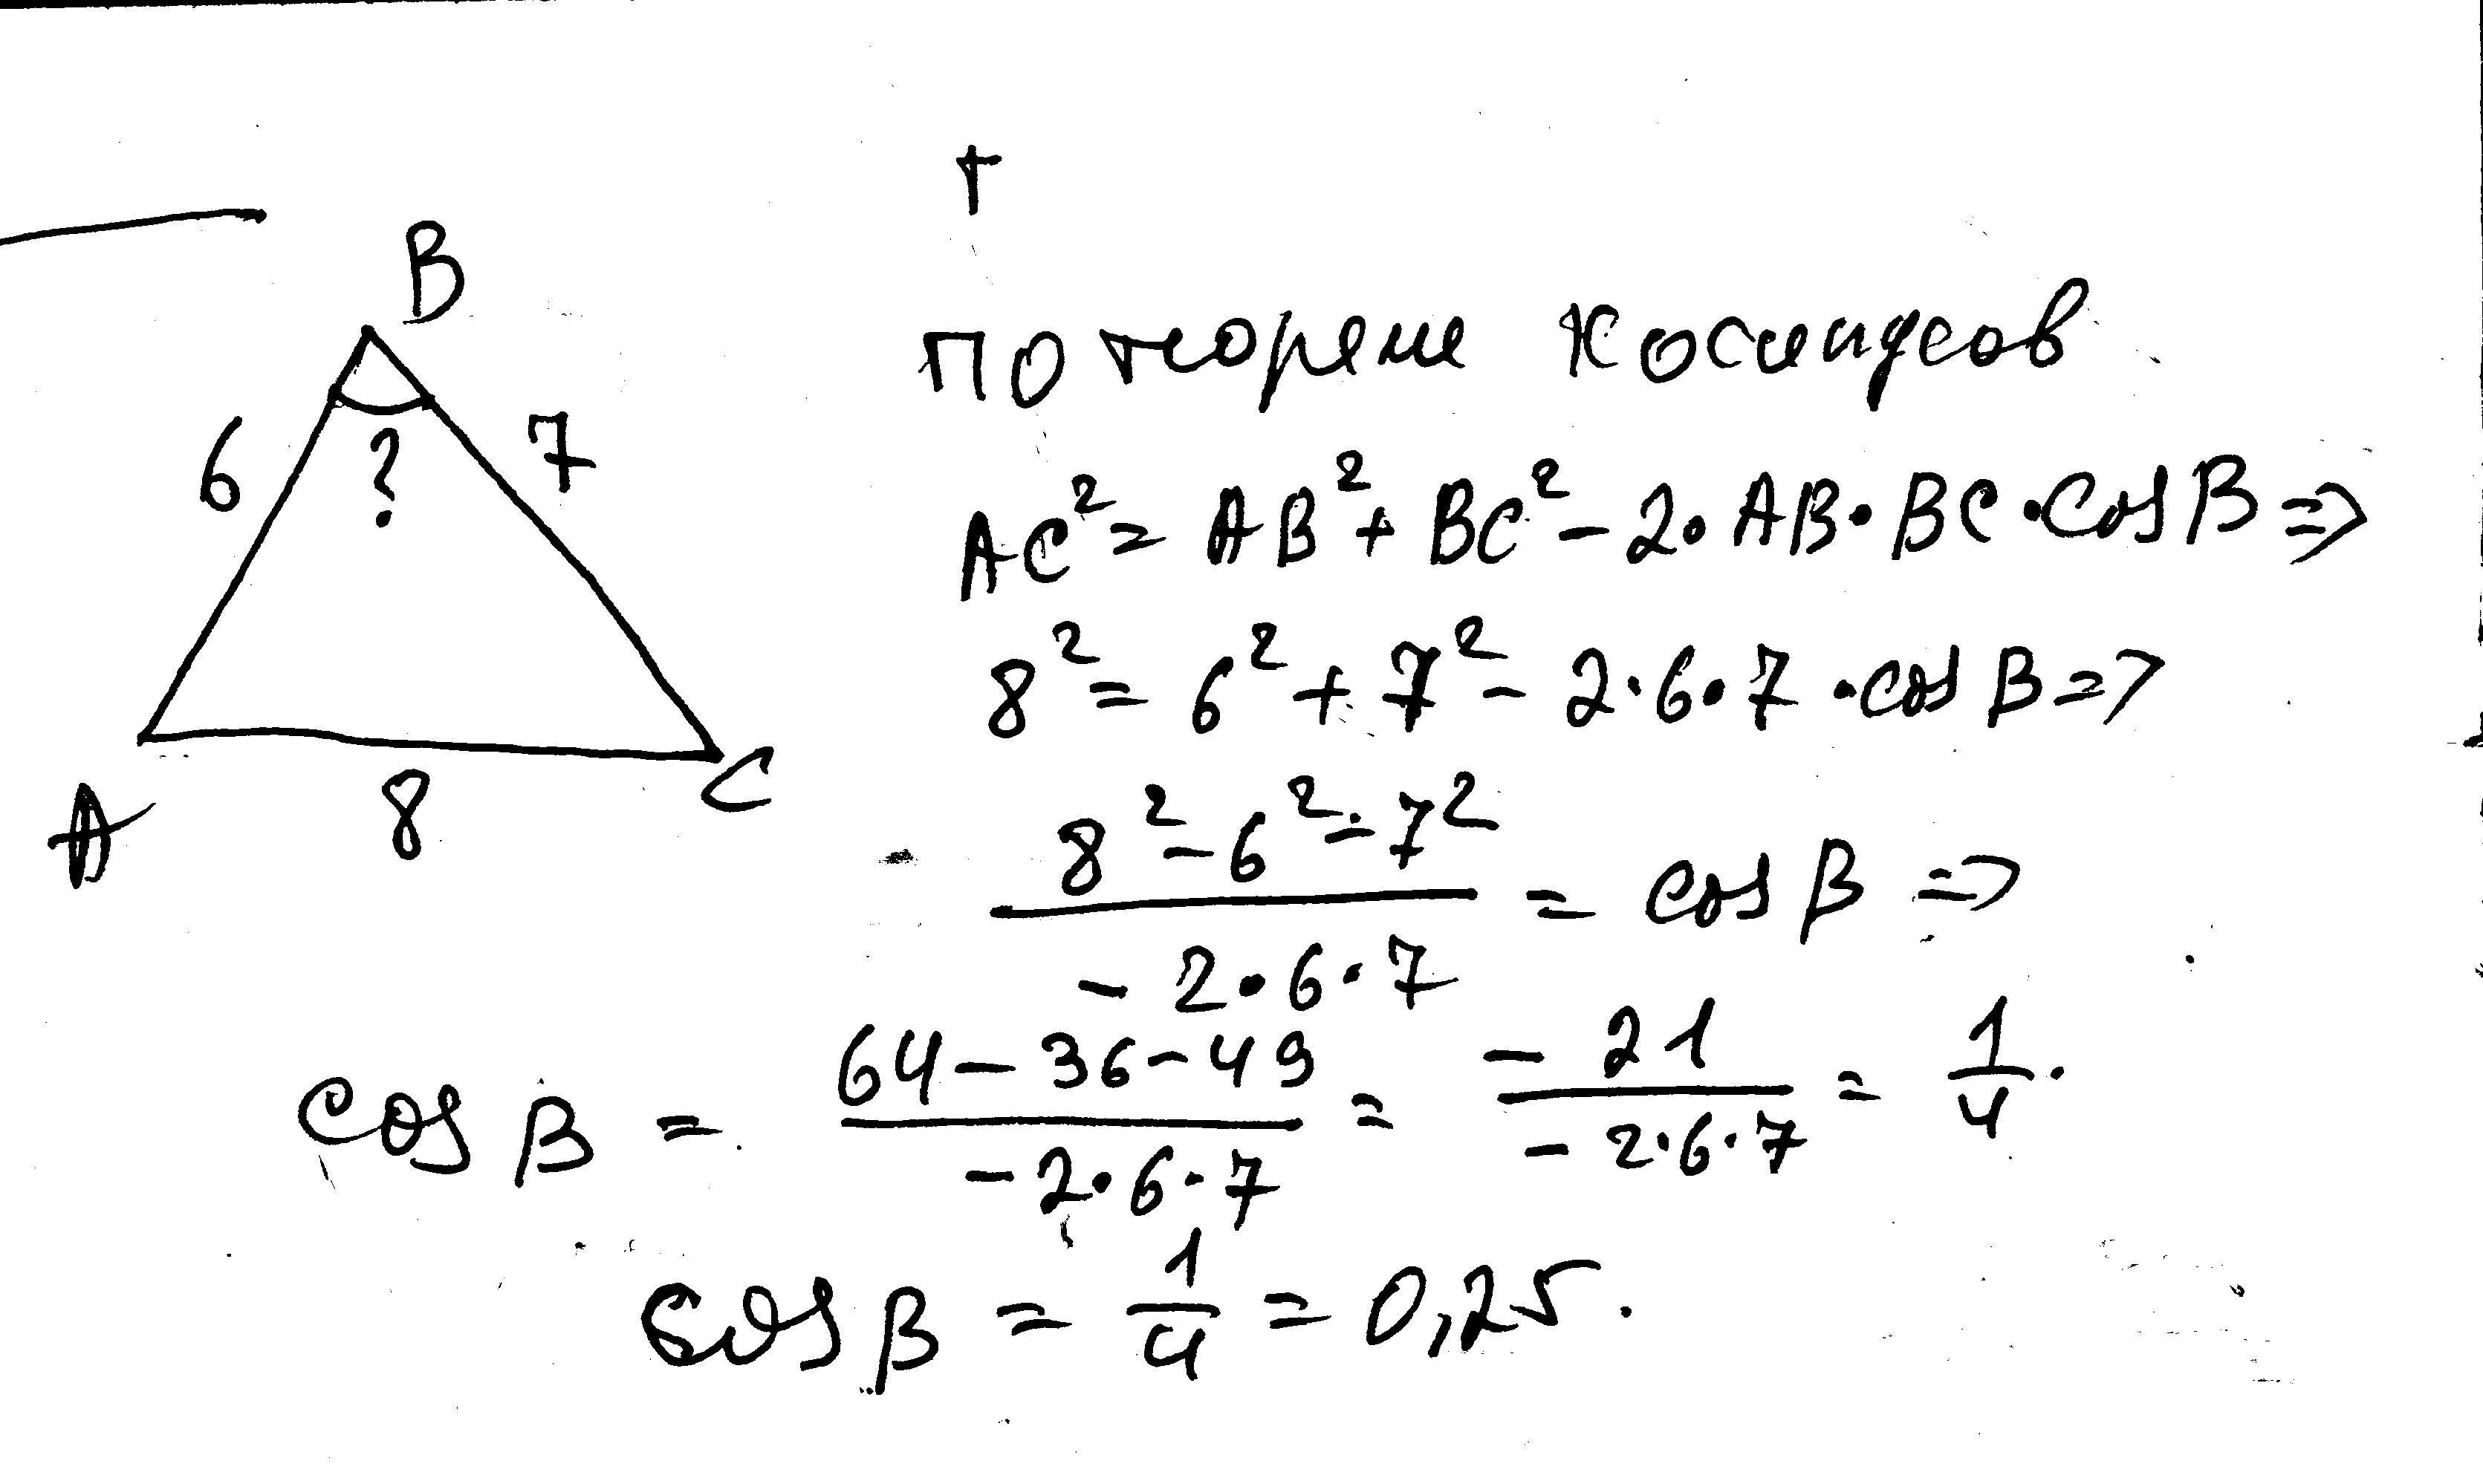 т
B
По теореме косинусов
6
?
7
AC² = AB² + BC² - 2·AB·BC·cosB =>
8² = 6² + 7² - 2·6·7·cosB =>
A
8
C
8² - 6² - 7² / -2·6·7 = cosB =>
cosB = 64 - 36 - 49 / -2·6·7 = -21 / -2·6·7 = 1/4.
cosB = 1/4 = 0,25.